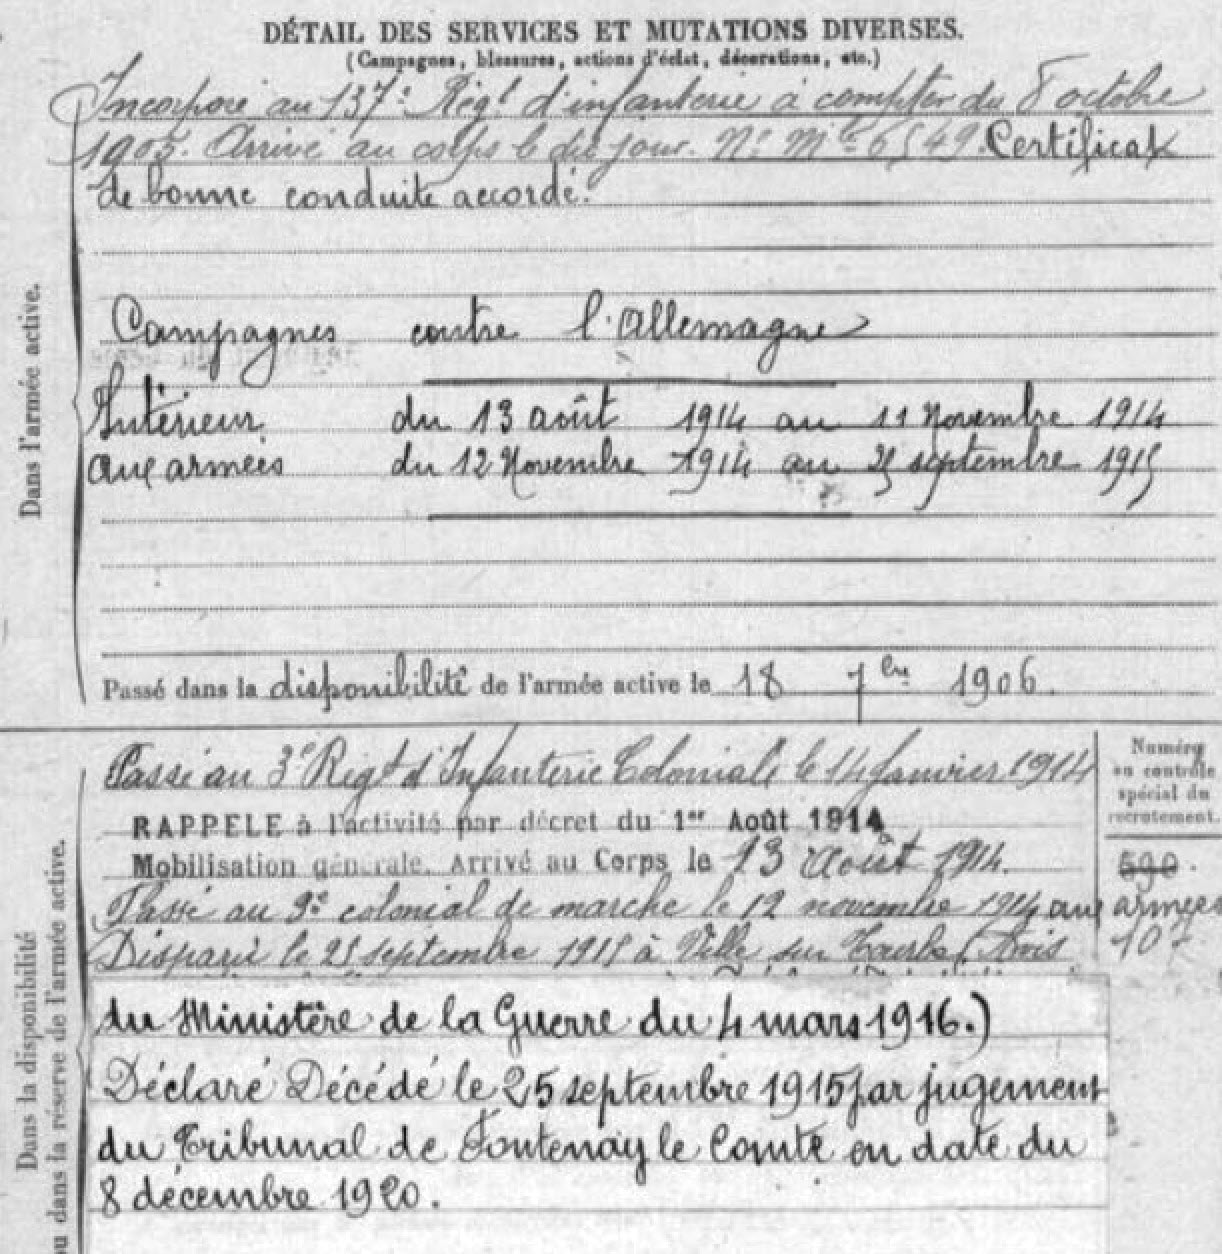 DÉTAIL DES SERVICES ET MUTATIONS DIVERSES.
(Campagnes, blessures, actions d'éclat, décorations, etc.)
Incorporé au 137e Régt d'infanterie à compter du 8 octobre
1905. Arrivé au corps le dit jour. No Mle 6549. Certificat
de bonne conduite accordé.
Dans l'armée active.
Campagnes contre l'Allemagne
Intérieur du 13 août 1914 au 11 Novembre 1914
aux armées du 12 Novembre 1914 au 25 septembre 1915
Passé dans la disponibilité de l'armée active le 18 7bre 1906.
Passé au 3e Régt d'Infanterie Coloniale le 14 Janvier 1914
Numéro
au contrôle
spécial du
recrutement.
RAPPELÉ à l'activité par décret du 1er Août 1914
Mobilisation générale. Arrivé au Corps le 13 Août 1914.
590
Passé au 3e colonial de marche le 12 novembre 1914 aux armées
Disparu le 25 septembre 1915 à Ville sur Tourbe (Avis
107
du Ministère de la Guerre du 4 mars 1916.)
Déclaré Décédé le 25 septembre 1915 par jugement
du Tribunal de Fontenay le Comte en date du
8 décembre 1920.
Dans la disponibilité
ou dans la réserve de l'armée active.